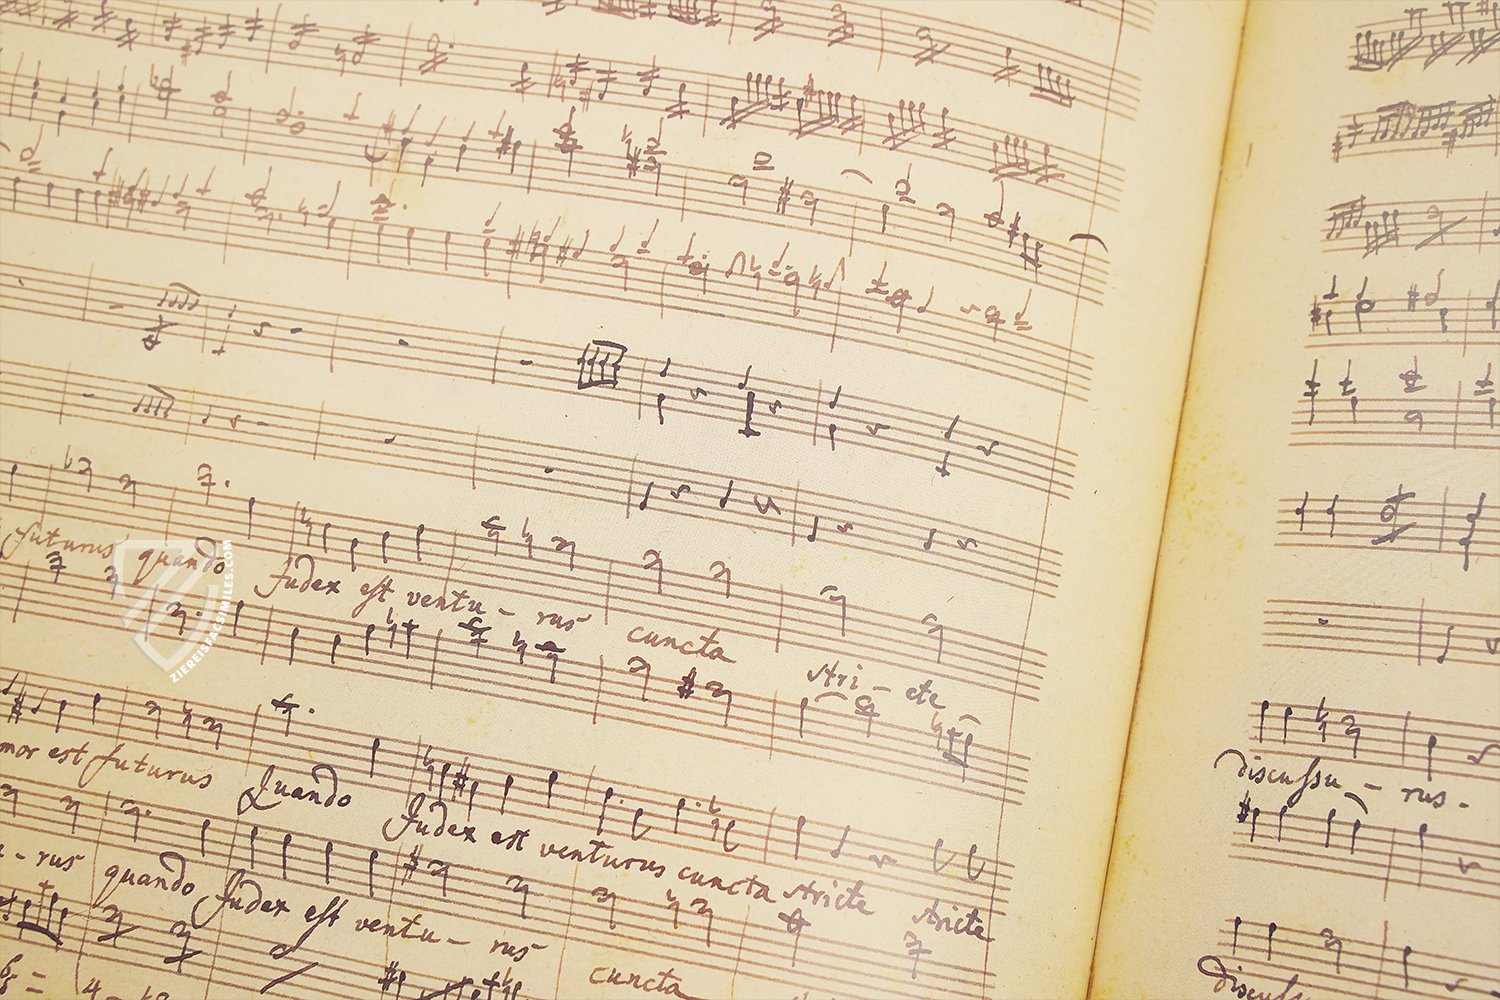 futurus quando Judex est ventu - rus cuncta stri - cte
mor est futurus Quando Judex est venturus cuncta stricte stricte
- rus quando Judex est ventu - rus cuncta
discussu - rus -
discussu
ZIEREISFACSIMILES.COM